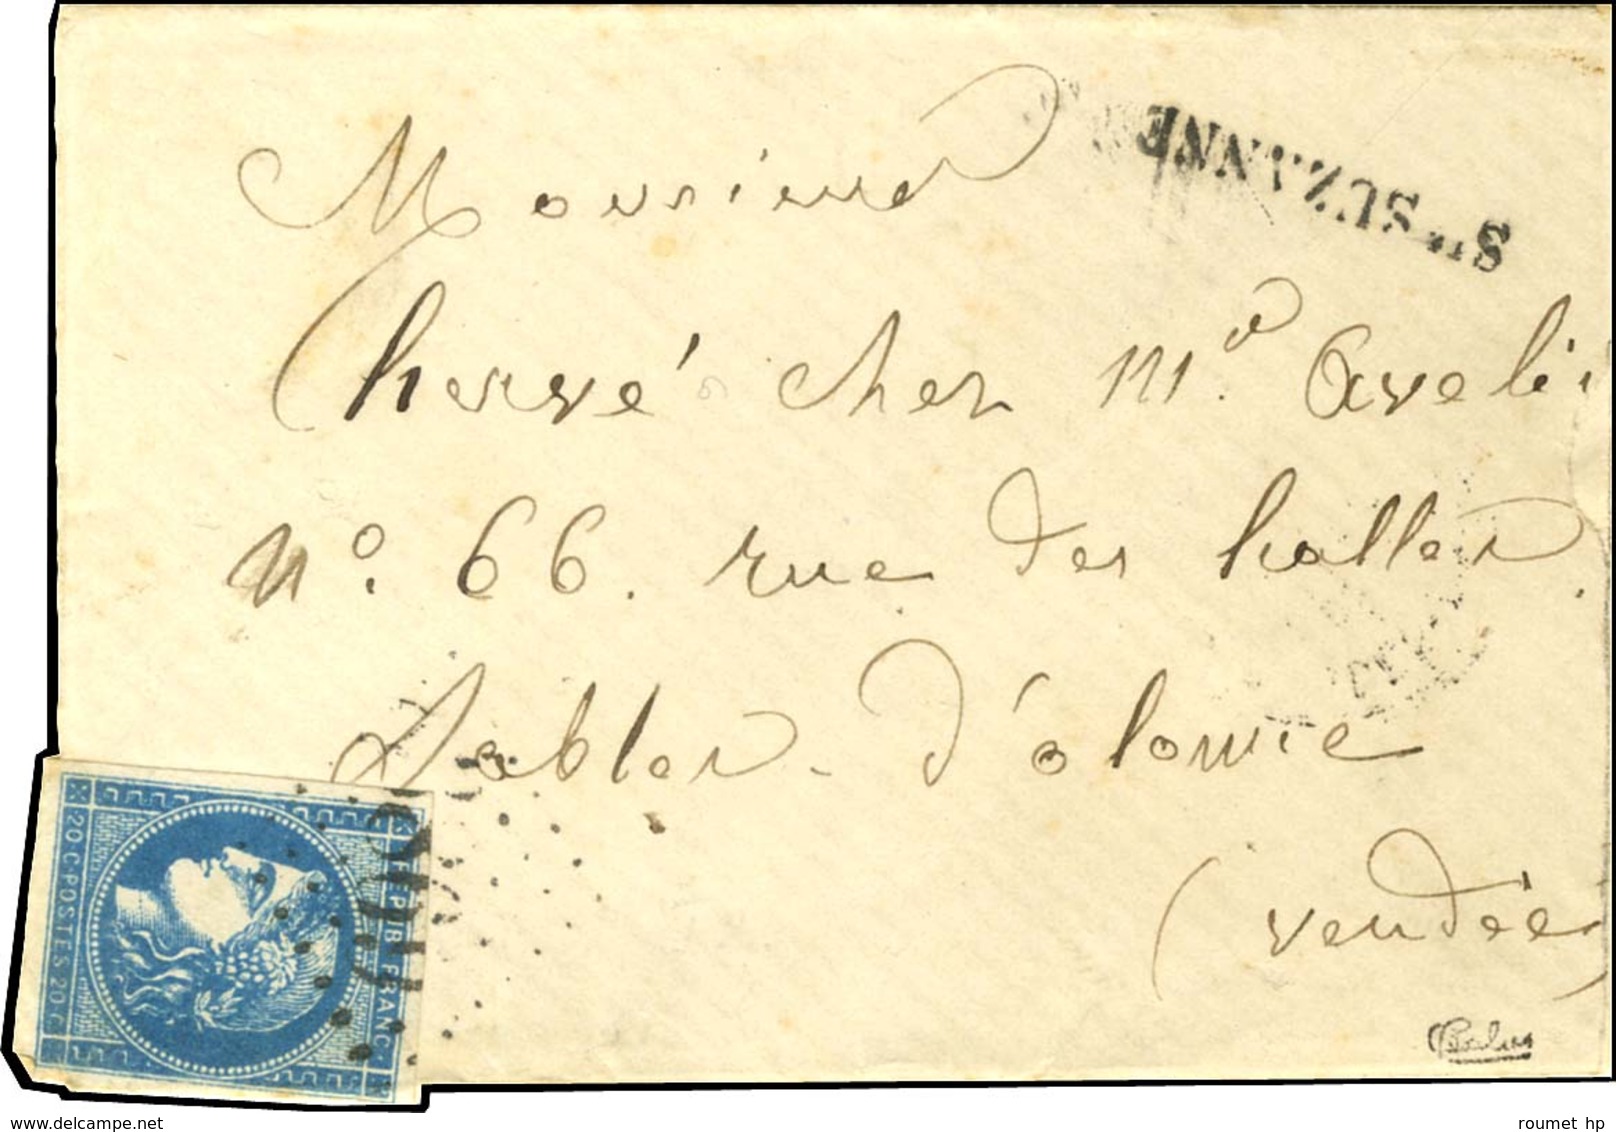 Sᵗᵉ SUZANNE
Monsieur
hervé chez mᵉ. aveli
nº. 66. rue des halles.
Sables- d'olonne
(vendée)
REPUB FRANC.
20 C·POSTES 20 C
www.delcampe.net
roumet hp